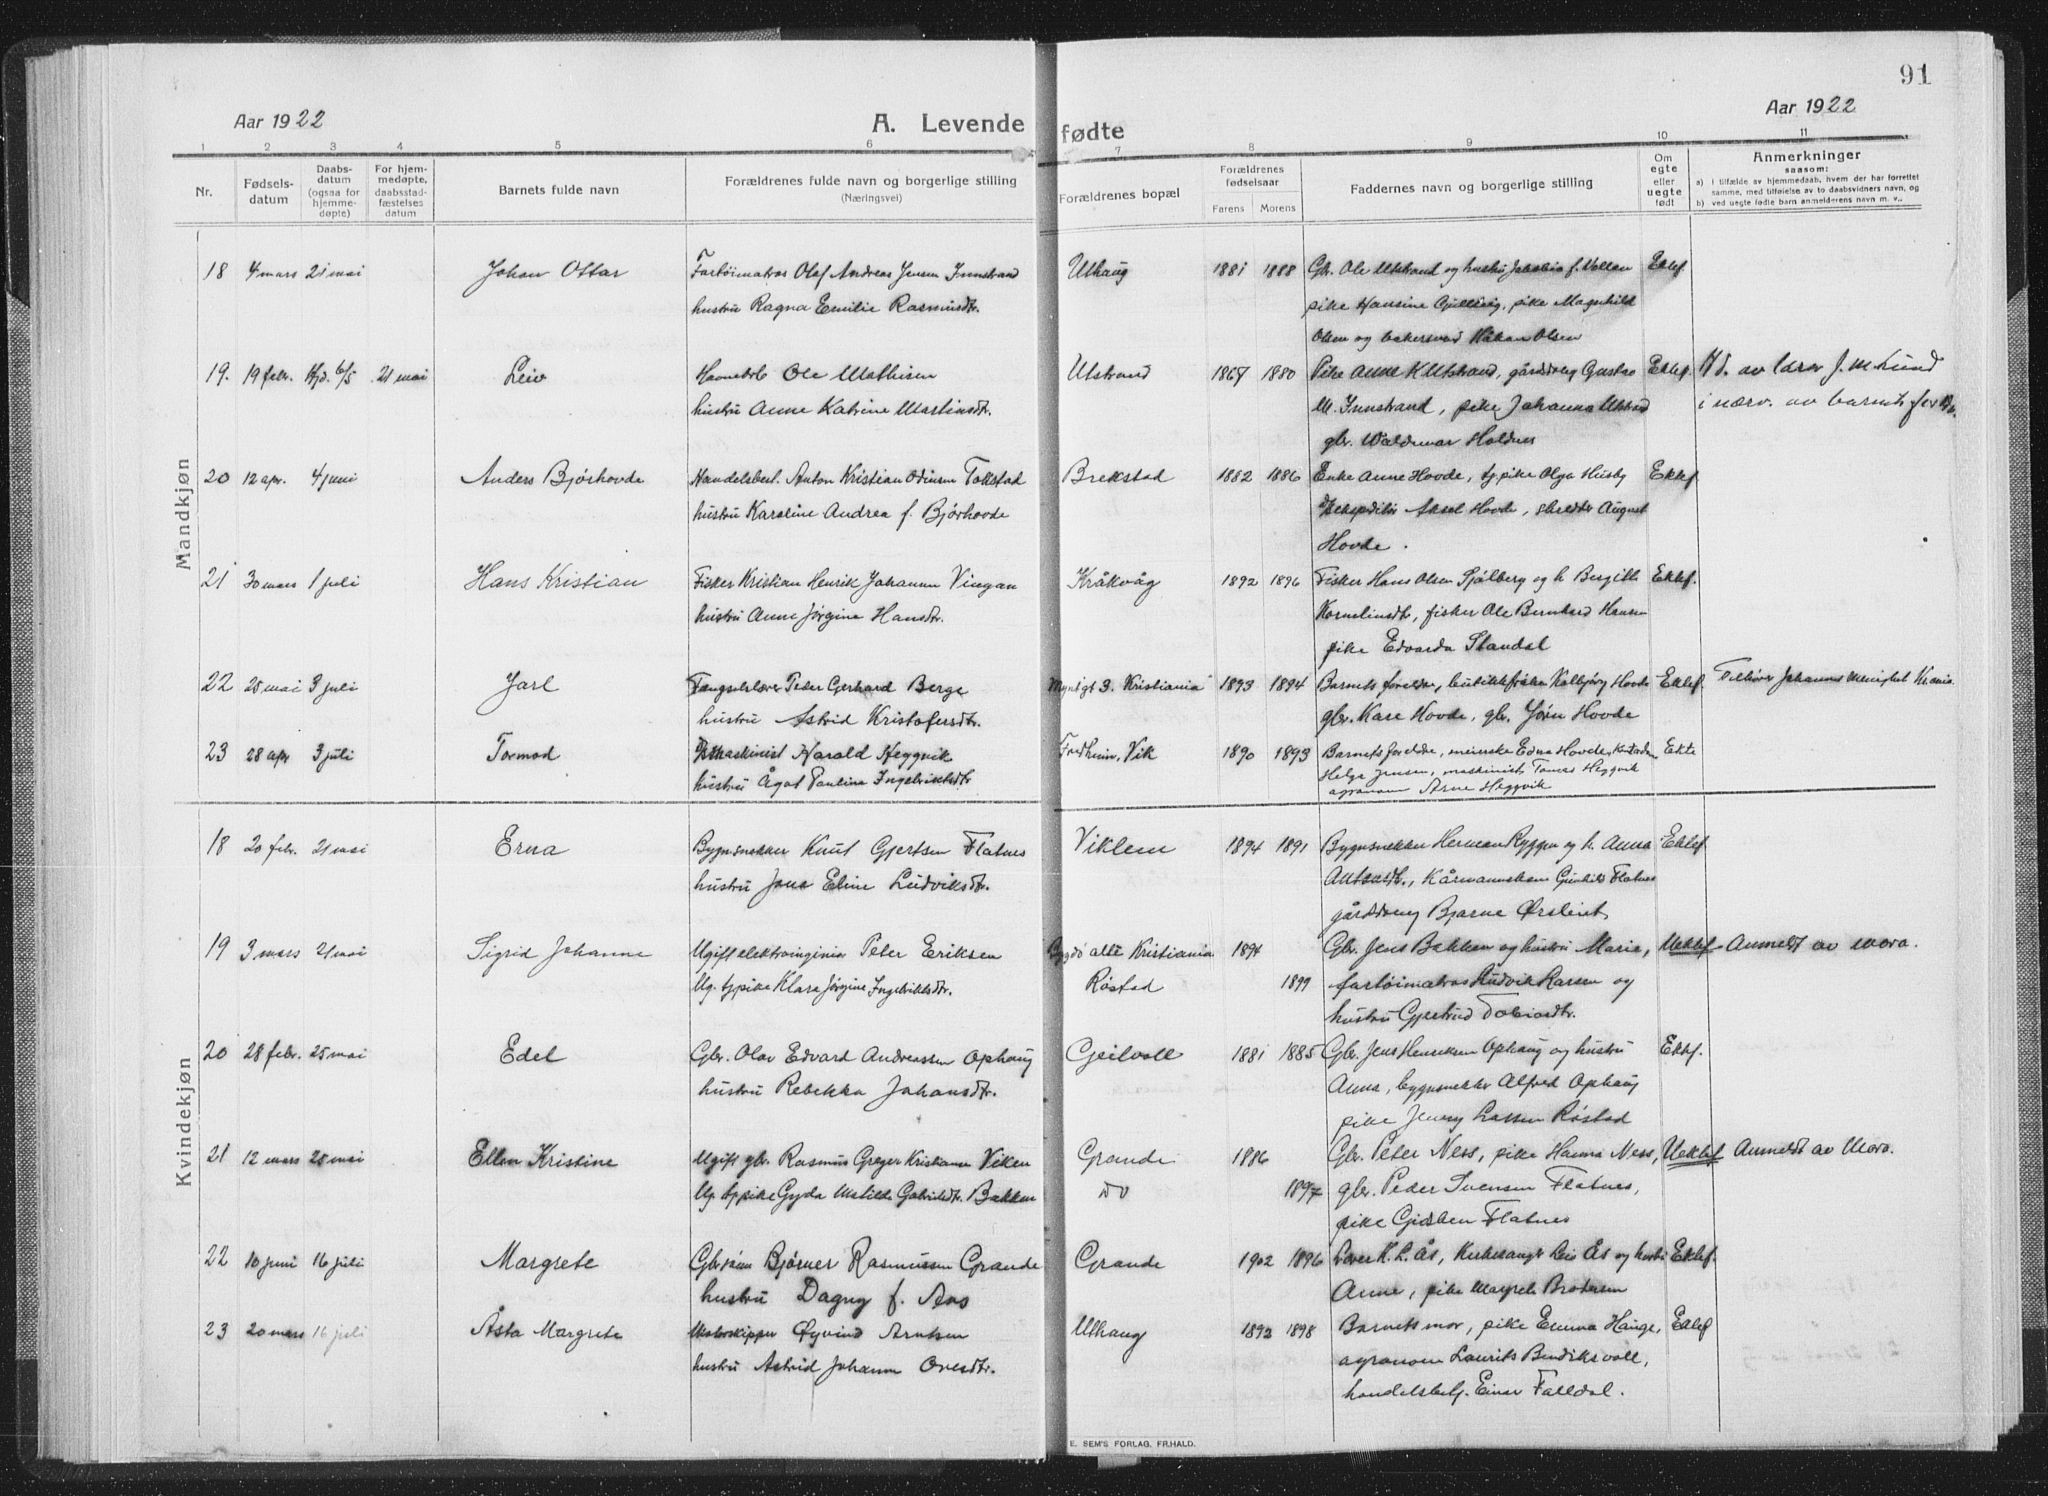 91
Aar 1922
A. Levende fødte
Aar 1922
1 2 3 4 5 6 7 8 9 10 11
Nr.
Fødsels-
datum
Daabs-
datum
(ogsaa for
hjemme-
døpte)
For hjem-
medøpte,
daabsstad-
fæstelses
datum
Barnets fulde navn
Forældrenes fulde navn og borgerlige stilling
(Næringsvei)
Forældrenes bopæl
Forældrenes
fødselsaar
Farens Morens
Faddernes navn og borgerlige stilling
Om
egte
eller
uegte
født
Anmerkninger
saasom:
a) i tilfælde av hjemmedaab, hvem der har forrettet
samme, med tilføielse av to daabsvidners navn, og
b) ved uegte fødte barn anmelderens navn m. v..
Mandkjøn
18 4 mars 21 mai Johan Ottar Fartøimatros Olaf Andreas Jensen Innstrand Uthaug 1881 1888 Gbr. Ole Utstrand og hustru Jakobia f. Vollan Ektef.
hustru Ragna Emilie Rasmusdtr. pike Hansine Gjelsvig, pike Magnhild
Olsen og bakersvend Håkon Olsen
19. 19 febr. Hjd. 6/5 21 mai Leiv Ole Mathisen Utstrand 1867 1880 Pike Anne K Utstrand, gårddreng Gustav Ektef. Hd. av lærer J. M. Lund
hustru Anne Katrine Martinsdtr. M. Innstrand, pike Johanna Utstrand i nærv. av barnets for
gbr. Waldemar Holdnes
20 12 apr. 4 juni Anders Bjørhovde Handelsbest. Anton Kristian Odinsen Tokstad Brekstad 1882 1886 Enke Anne Hovde, tj.pike Olga Husby Ektef.
hustru Karoline Andrea f. Bjørhovde Ekspeditør Aksel Hovde, skredder August
Hovde.
21 30 mars 1 juli Hans Kristian Fisker Kristian Henrik Johansen Vingan Kråkvåg 1892 1896 Fisker Hans Olsen Sjølberg og h. Bergitte Ektef.
hustru Anne Jørgine Hansdtr. Kornelinsdtr, fisker Ole Bernhard Hansen
pike Edvarda Standal
22 25 mai 3 juli Jarl Fængselslærer Peder Gerhard Berge Myntgt 3. Kristiania 1893 1894 Barnets foreldre, butikkfrøken Kolbjørg Hovde Ektef.
hustru Astrid Kristofersdtr. gbr. Kåre Hovde, gbr. Jørn Hovde
23 28 apr 3 juli Tormod maskinist Harald Heggvik Fredheim, Vik 1890 1893 Barnets foreldre, meierske Edna Hovde, Ekte
hustru Ågot Pauline Ingebriktsdtr Helga Jensen, maskinist Tomas Heggvik
agronom Arne Heggvik
Kvindekjøn
18 20 febr. 21 mai Erna Bygnsnekker Knut Gjertsen Flatnes Viklem 1894 1891 Bygnsnekker Herman Ryggen og h. Anna Ektef
hustru Jona Eline Ludviksdtr. Antonsdtr., Kårmannskone Gunhild Flatnes
gårddreng Bjarne Ørsleint
19 3 mars 21 mai Sigrid Johanne Ugift elektroinginiør Peter Eriksen Bygdø allé Kristiania 1894 Gbr. Jens Bakken og hustru Marie, Uektef Anmeldt av mora.
Ug. tj.pike Klara Jørgine Ingebriktsdtr. Røstad 1899 fartøimatros Ludvik Larsen og
hustru Gjertrud Tobiasdtr.
20 28 febr. 25 mai Edel Gbr. Olav Edvard Andreassen Ophaug Geilvoll 1881 1885 Gbr. Jens Henriksen Ophaug og hustru Ektef.
hustru Rebekka Johansdtr. Anna, bygnsnekker Alfred Ophaug
pike Jenny Lassen Røstad
21 12 mars 28 mai Ellen Kristine Ugift gbr. Rasmus Greger Kristiansen Viken Grande 1886 Gbr. Peter Ness, pike Hanna Ness, Uektef Anmeldt av Mora.
Ug tjpike Gyda Matilde Gabrielsdtr. Bakken do 1897 gbr. Peder Svensen Flatnes,
pike Gidsken Flatnes
22 10 juni 16 juli Margrete Gbrsønn Bjørner Rasmussen Grande Grande 1902 1896 Lærer K. L. Ås, Kirkesanger Leiv Ås og hustru Ektef.
hustru Dagny f. Aas Anne, pike Margrete Brodersen
23 20 mars 16 juli Åsta Margrete Motorskipper Øyvind Arntsen Uthaug 1892 1898 Barnets mor, pike Emma Hauge, Ektef
hustru Astrid Johanne Ovesdtr. agronom Laurits Bendiksvoll,
handelsbetj. Einar Falldal.
E. SEM'S FORLAG, FR.HALD.